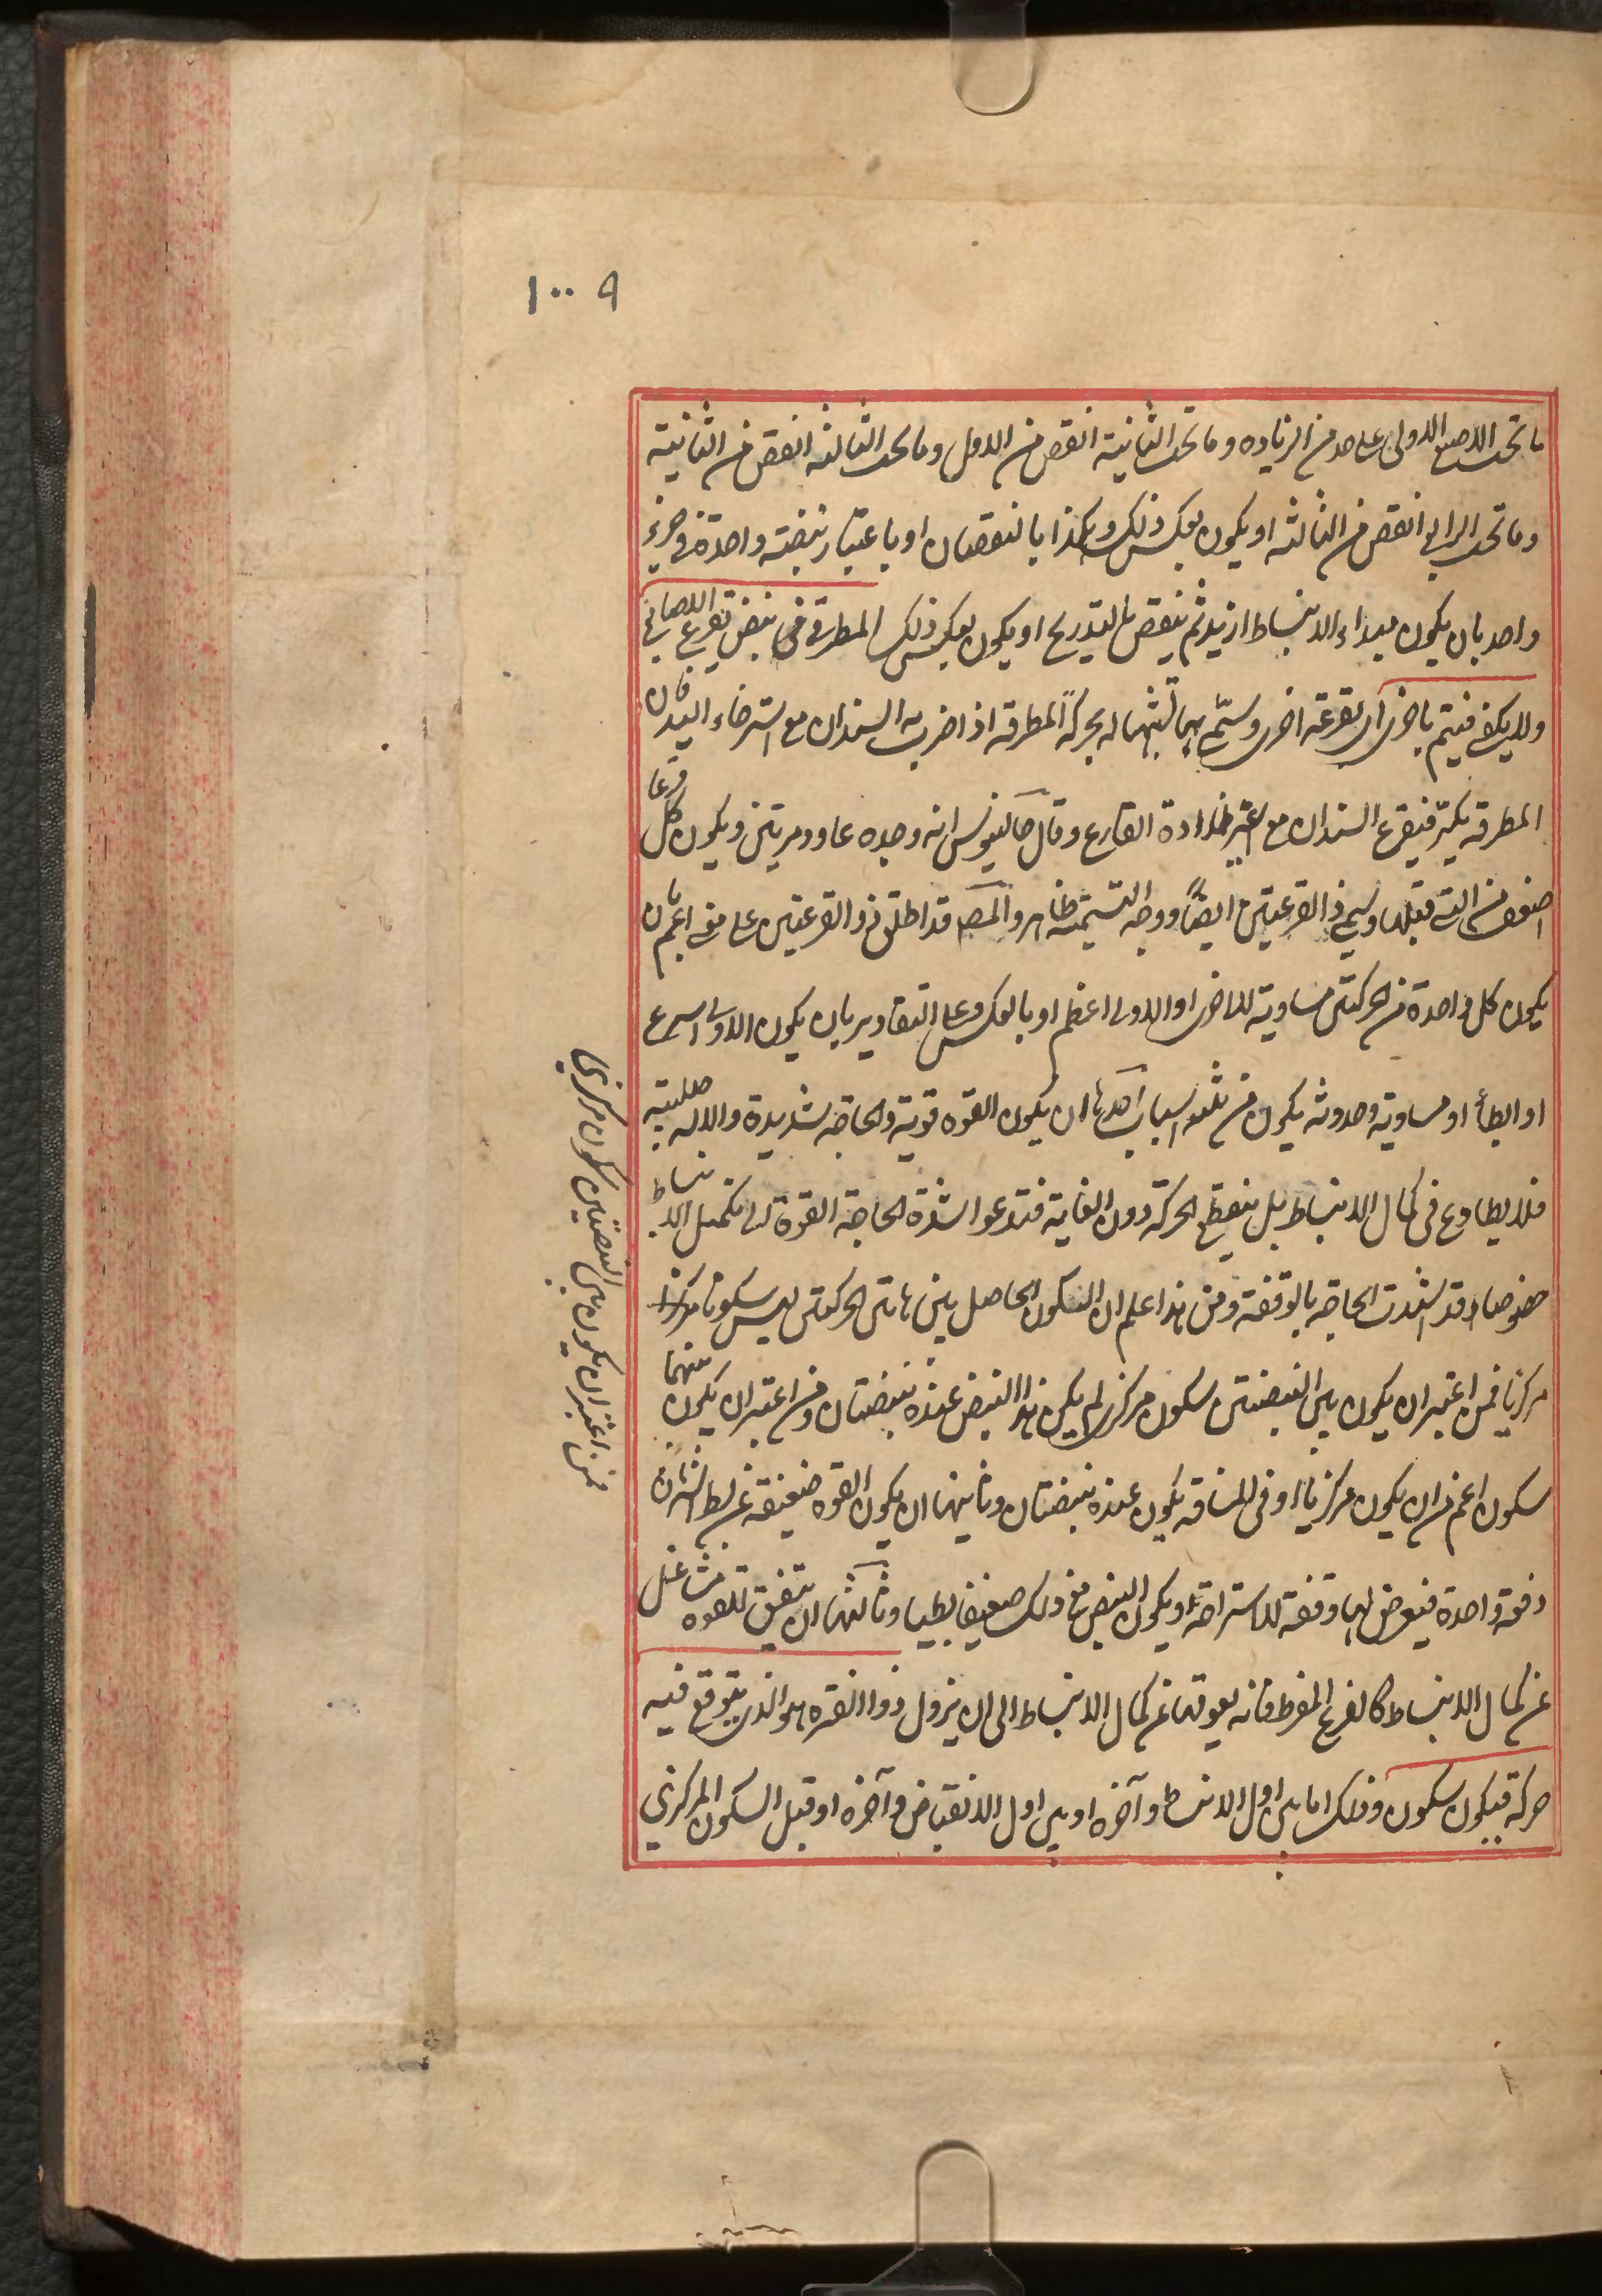 ١٠٠٩
ما تحت الاصبع الاولى على حد من الزياده وما تحت الثانية انقص من الاول وما تحت الثالثه انقص من الثانية
وما تحت الرابع انقص من الثالثه او يكون بعكس ذلك وهكذا بالنقصان او باعتبار نبضته واحدة فى جزء
واحد بان يكون مبداء الانبساط ازيد ثم ينقص بالتدريج او يكون بعكس ذلك المطرقى هى نبض تقرع الاصابع
ولا يكفى فيتم باخرى اى بقرعة اخرى وسمى بها لشبهها له بحركة المطرقه اذا ضرب به السندان مع استرخاء اليد فان
المطرقه يكر فيقرع السندان مع غير ارادة القارع وقال جالينوس انه وجده عاود مرتين ويكون كل قرعا
اضعف من التى قبلها وسمى ذا القرعتين ايضاً ووجه التسميته ظاهر والمصـ قد اطلق ذو القرعتين على معنى اعم بان
يكون كل واحدة من الحركتين مساوية للاخرى او الاولى اعظم او بالعكس وعلى التقادير بان يكون الاولى اسرع
او ابطأ او مساوية وحدوثه يكون من ثلثه اسباب احدها ان يكون القوه قوية والحاجه شديدة والاله صلبيته
فلا يطاوع فى كمال الانبساط بل ينقطع الحركة دون الغاية فتدعوا شدة الحاجة القوة الى تكميل الانبساط
خصوصا وقد اشتدت الحاجه بالوقفة ومن هذا علم ان السكون الحاصل بين هاتين الحركتين ليس سكونا
مركزيا فمن اعتبر ان يكون بين النبضتين سكون مركزى لم يكن هذا النبض عنده نبضتان ومن اعتبر ان يكون بينهما
سكون اعم من ان يكون مركزيا او فى المسافة يكون عنده نبضتان وثانيها ان يكون القوه ضعيفة عن بسط الشريان
دفعة واحدة فيعرض لها وقفة للاستراحة ويكون النبض مع ذلك ضعيفا بطيئا وثالثها ان يتفق للقوه مشاغل
عن كمال الانبساط كالفزع المفرط فانه يعوقها عن كمال الانبساط الى ان يزول ذو الفترة هو الذى يتوقع فيه
حركة فيكون سكون وذلك اما بين اول الانبساط وآخره او بين اول الانقباض وآخره او قبل السكون المركزى
فمن اعتبر ان يكون بين النبضتين سكون مركزى